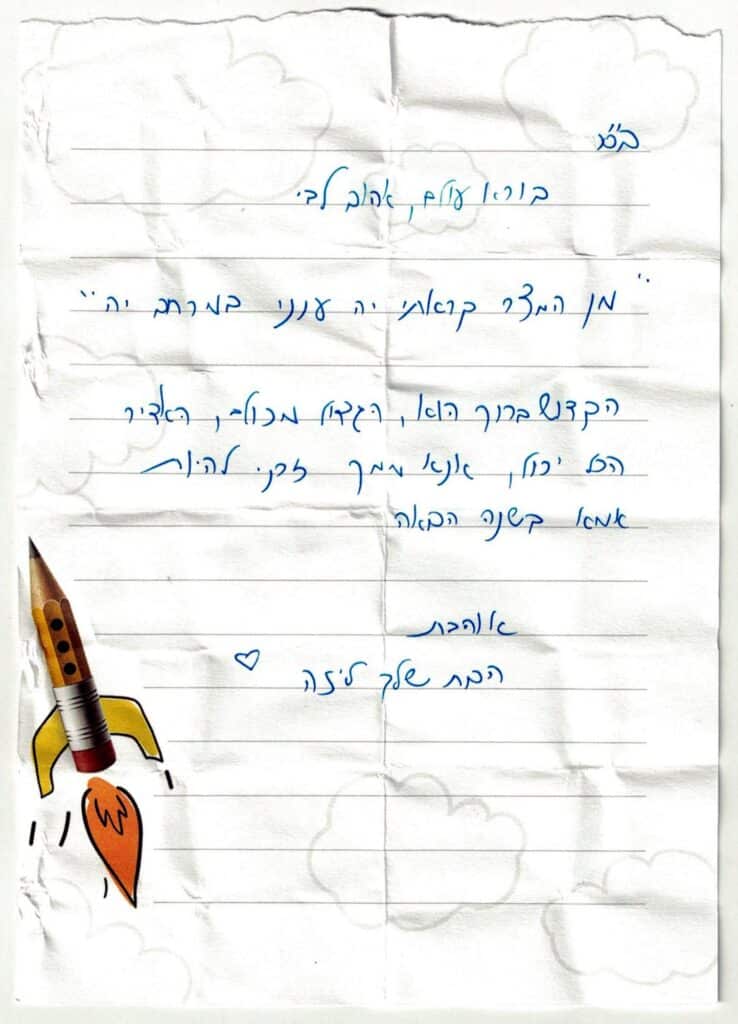 ב"ה
בורא עולם, אהוב לבי
"מן המצר קראתי יה ענני במרחב יה"
הקדוש ברוך הוא, הגדול מכולם, האדיר
הכל יכול, אנא ממך זכני להיות
אמא בשנה הבאה
אוהבת
הבת שלך ליזה